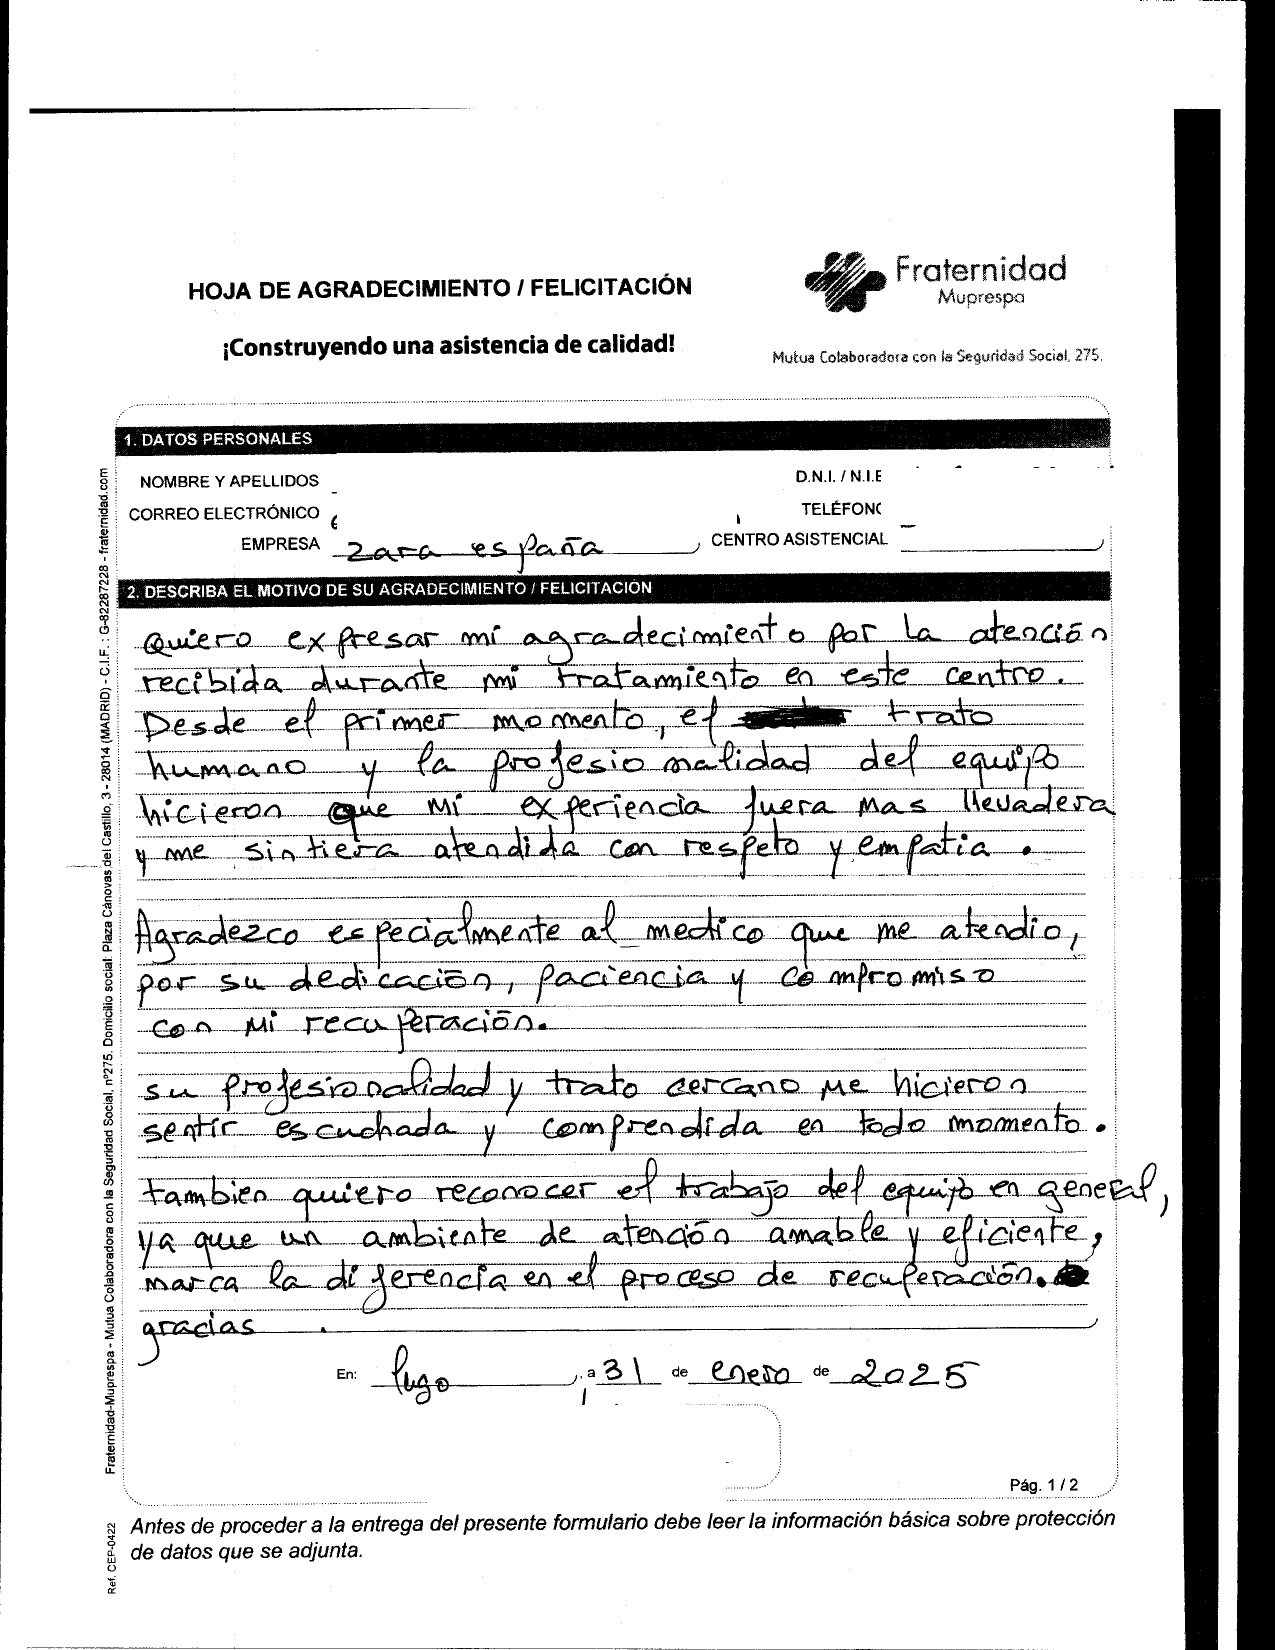 HOJA DE AGRADECIMIENTO / FELICITACIÓN
¡Construyendo una asistencia de calidad!
Fraternidad
Muprespa
Mutua Colaboradora con la Seguridad Social, 275.
1. DATOS PERSONALES
NOMBRE Y APELLIDOS
D.N.I. / N.I.E
CORREO ELECTRÓNICO
TELÉFONO
EMPRESA zara españa
CENTRO ASISTENCIAL
2. DESCRIBA EL MOTIVO DE SU AGRADECIMIENTO / FELICITACIÓN
Quiero expresar mi agradecimiento por la atención
recibida durante mi tratamiento en este centro.
Desde el primer momento, el trato
humano y la profesionalidad del equipo
hicieron que mi experiencia fuera mas llevadera
y me sintiera atendida con respeto y empatia.
Agradezco especialmente al medico que me atendio,
por su dedicación, paciencia y compromiso
con mi recuperación.
su profesionalidad y trato cercano me hicieron
sentir escuchada y comprendida en todo momento.
tambien quiero reconocer el trabajo del equipo en general,
ya que un ambiente de atención amable y eficiente,
marca la diferencia en el proceso de recuperación.
gracias.
En: lugo, a 31 de enero de 2025
Pág. 1 / 2
Antes de proceder a la entrega del presente formulario debe leer la información básica sobre protección
de datos que se adjunta.
Fraternidad-Muprespa - Mutua Colaboradora con la Seguridad Social, nº275. Domicilio social: Plaza Cánovas del Castillo, 3 - 28014 (MADRID) - C.I.F. : G-82287228 - fraternidad.com
Ref. CEP-0422